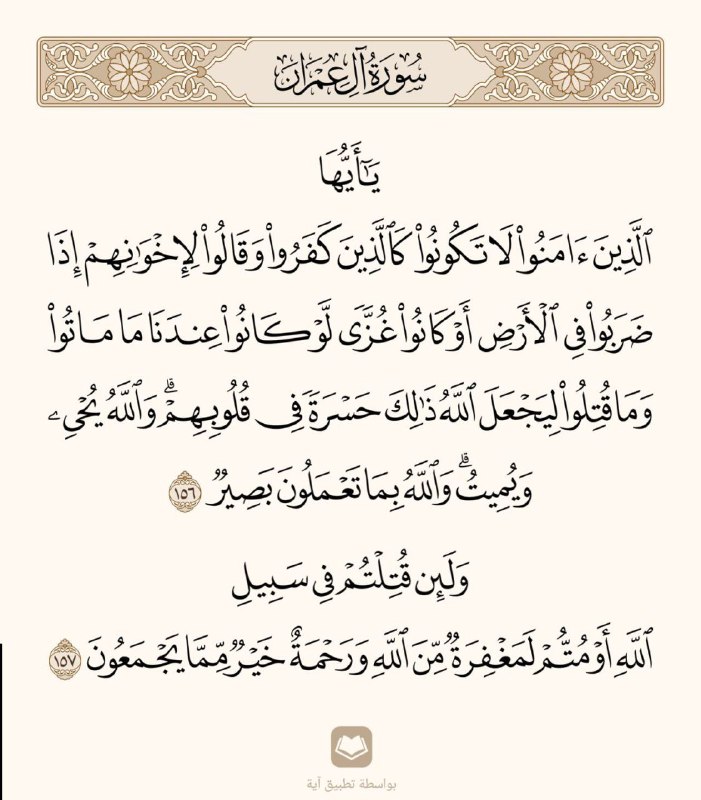 سُورَةُ آلِ عِمْرَان
يَـٰٓأَيُّهَا
ٱلَّذِينَ ءَامَنُوا۟ لَا تَكُونُوا۟ كَٱلَّذِينَ كَفَرُوا۟ وَقَالُوا۟ لِإِخْوَٰنِهِمْ إِذَا
ضَرَبُوا۟ فِى ٱلْأَرْضِ أَوْ كَانُوا۟ غُزًّى لَّوْ كَانُوا۟ عِندَنَا مَا مَاتُوا۟
وَمَا قُتِلُوا۟ لِيَجْعَلَ ٱللَّهُ ذَٰلِكَ حَسْرَةً فِى قُلُوبِهِمْ ۗ وَٱللَّهُ يُحْىِۦ
وَيُمِيتُ ۗ وَٱللَّهُ بِمَا تَعْمَلُونَ بَصِيرٌ ١٥٦
وَلَئِن قُتِلْتُمْ فِى سَبِيلِ
ٱللَّهِ أَوْ مُتُّمْ لَمَغْفِرَةٌ مِّنَ ٱللَّهِ وَرَحْمَةٌ خَيْرٌ مِّمَّا يَجْمَعُونَ ١٥٧
بواسطة تطبيق آية